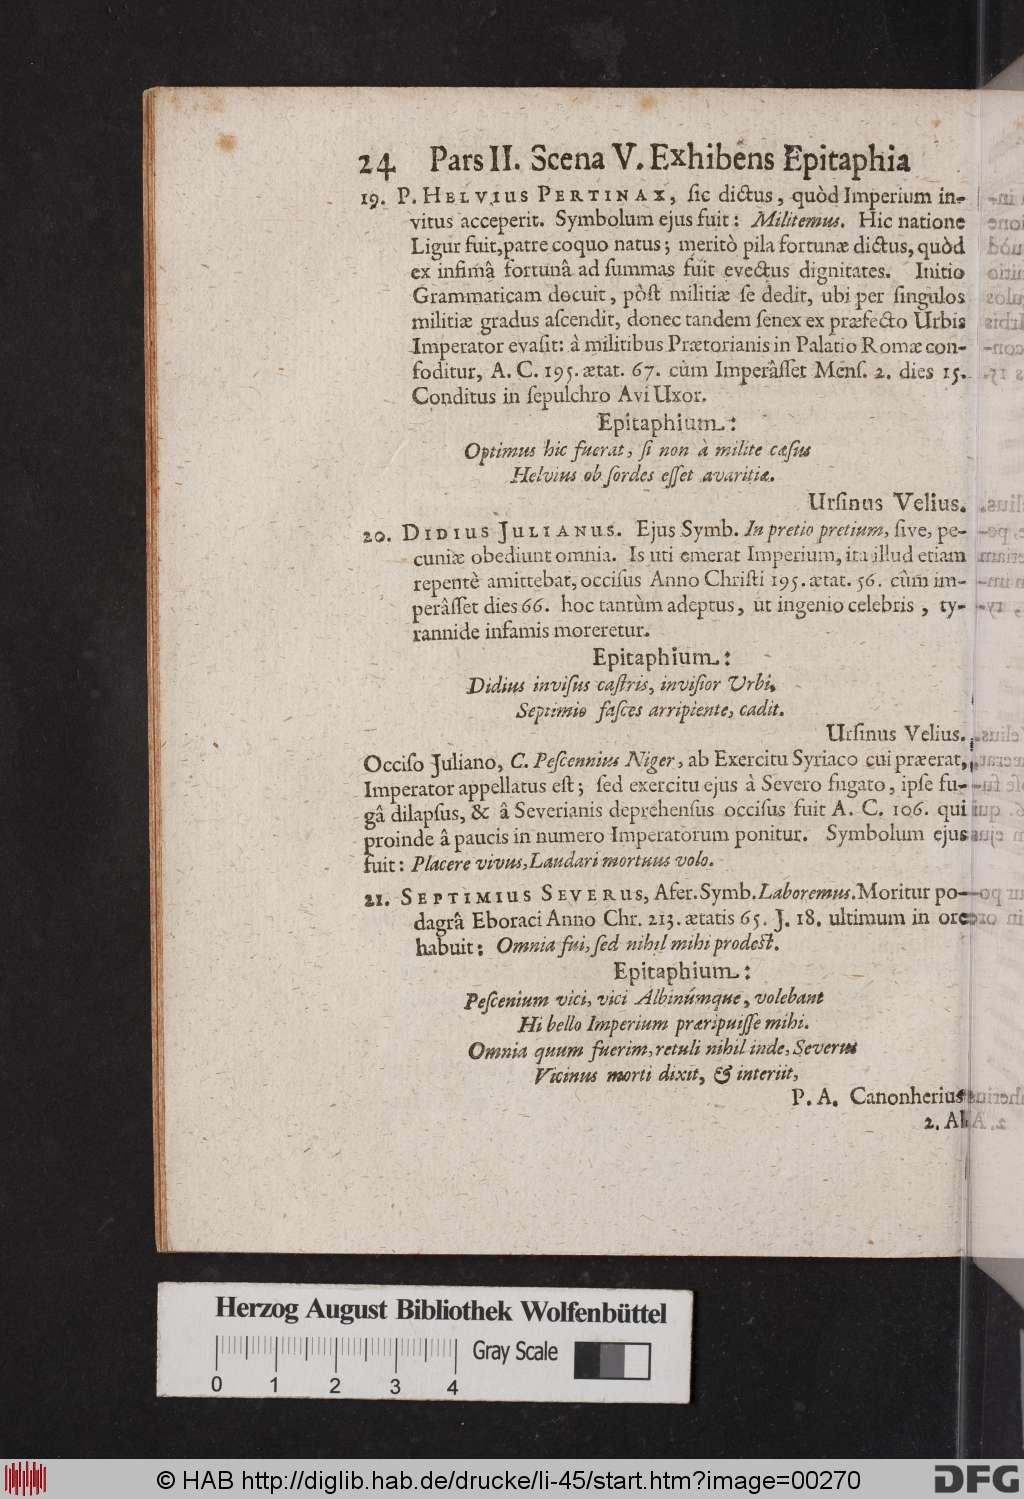 24 Pars II. Scena V. Exhibens Epitaphia
19. P. HELVIUS PERTINAX, sic dictus, quòd Imperium in-
vitus acceperit. Symbolum ejus fuit: Militemus. Hic natione
Ligur fuit, patre coquo natus; meritò pila fortunæ dictus, quòd
ex infimâ fortunâ ad summas fuit evectus dignitates. Initio
Grammaticam docuit, pòst militiæ se dedit, ubi per singulos
militiæ gradus ascendit, donec tandem senex ex præfecto Urbis
Imperator evasit: à militibus Prætorianis in Palatio Romæ con-
foditur, A. C. 195. ætat. 67. cùm Imperâsset Mens. 2. dies 15.
Conditus in sepulchro Avi Uxor.
Epitaphium:
Optimus hic fuerat, si non à milite cæsus
Helvius ob sordes esset avaritiæ.
Ursinus Velius.
20. DIDIUS JULIANUS. Ejus Symb. In pretio pretium, sive, pe-
cuniæ obediunt omnia. Is uti emerat Imperium, ita illud etiam
repentè amittebat, occisus Anno Christi 195. ætat. 56. cùm im-
perâsset dies 66. hoc tantùm adeptus, ut ingenio celebris, ty-
rannide infamis moreretur.
Epitaphium:
Didius invisus castris, invisior Urbi,
Septimio fasces arripiente, cadit.
Ursinus Velius.
Occiso Juliano, C. Pescennius Niger, ab Exercitu Syriaco cui præerat,
Imperator appellatus est; sed exercitu ejus à Severo fugato, ipse fu-
gâ dilapsus, & â Severianis deprehensus occisus fuit A. C. 106. qui
proinde â paucis in numero Imperatorum ponitur. Symbolum ejus
fuit: Placere vivus, Laudari mortuus volo.
21. SEPTIMIUS SEVERUS, Afer. Symb. Laboremus. Moritur po-
dagrâ Eboraci Anno Chr. 213. ætatis 65. J. 18. ultimum in ore
habuit: Omnia fui, sed nihil mihi prodest.
Epitaphium:
Pescenium vici, vici Albinúmque, volebant
Hi bello Imperium præripuisse mihi.
Omnia quum fuerim, retuli nihil inde, Severus
Vicinus morti dixit, & interiit,
P. A. Canonherius
2. Al
Herzog August Bibliothek Wolfenbüttel
Gray Scale
0 1 2 3 4
© HAB http://diglib.hab.de/drucke/li-45/start.htm?image=00270
DFG